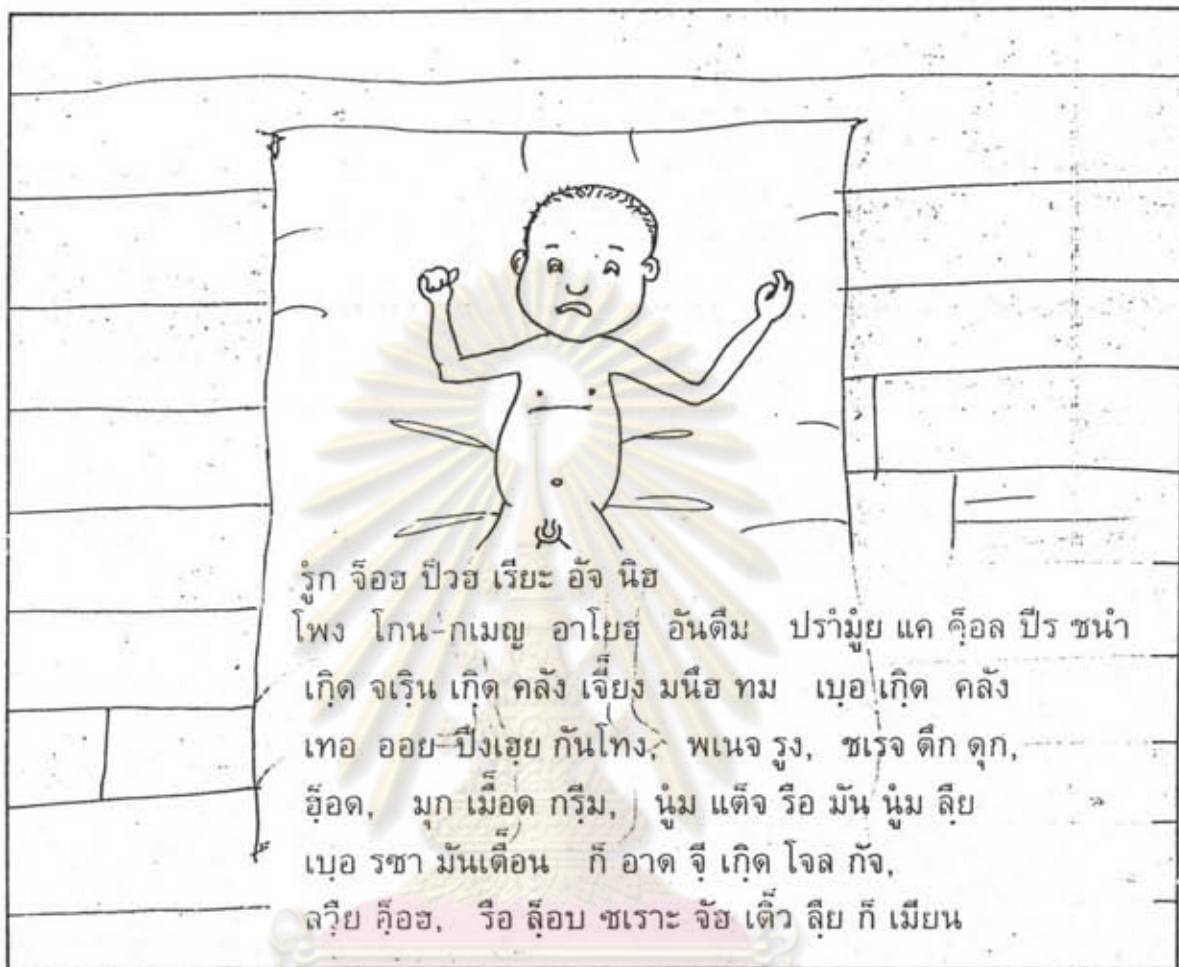 รู่ก จ็อฮ ป็วฮ เรียะ อัจ นิฮ
โพง โกน-กเมญ อาโยฮ อันดึม ปรามู้ย แค คู็อล ปีร ชนำ
เกิ̣ด จเริ̣น เกิ̣ด คลัง เจี๊ยง มนึฮ ทม เบฺอ เกิ̣ด คลัง
เทอ ออย ปึงเฮฺย กันโทง, พเนจ รฺูง, ชเรจ ตึก ดุก,
ฮฺ็อด, มุก เมื็อด กรีฺม, นู่ม แต็จ รือ มัน นู่ม ลีฺย
เบฺอ รซา มันเตื็อน ก็ อาด จีฺ เกิ̣ด โจล กัจ,
ลวีฺย คฺ็อฮ, รือ ลฺ็อบ ชเราะ จัฮ เติ็ว ลีฺย ก็ เมียน